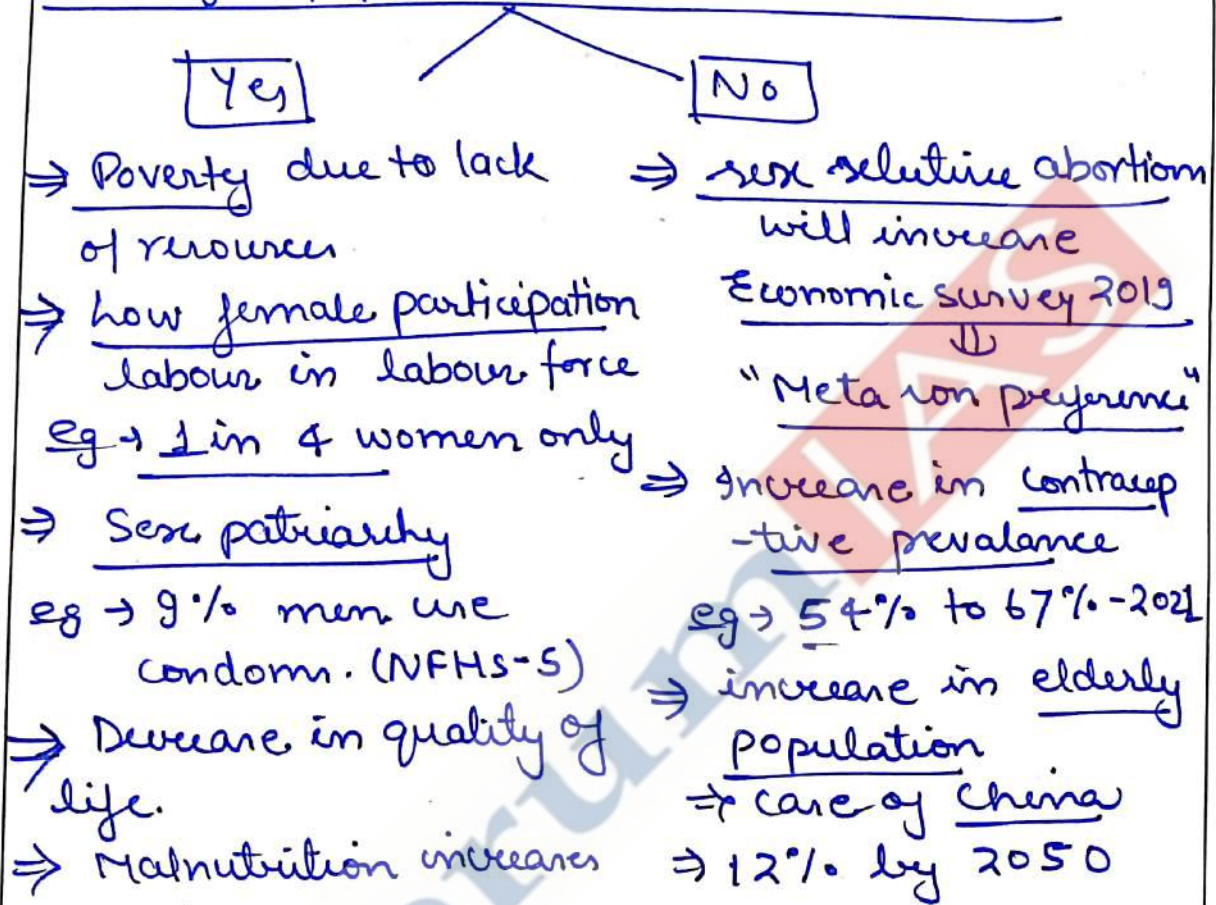 Yes
No
⇒ Poverty due to lack
of resources
⇒ Low female participation
labour in labour force
eg → 1 in 4 women only
⇒ Sex patriarchy
eg → 9% men use
condom. (NFHS-5)
⇒ Decrease in quality of
life.
⇒ Malnutrition increases
⇒ sex selutive abortion
will increase
Economic survey 2019
⇓
"Meta son preference"
⇒ Increase in contracep
-tive prevalance
eg → 54% to 67% - 2021
⇒ increase in elderly
population
⇒ case of China
⇒ 12% by 2050
rumIAS